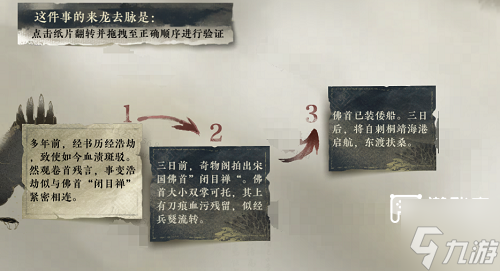 这件事的来龙去脉是：
点击纸片翻转并拖拽至正确顺序进行验证
1
多年前，经书历经浩劫
，致使如今血渍斑驳。
然观卷首残言，事变浩
劫似与佛首“闭目禅”
紧密相连。
2
三日前，奇物阁拍出宋
国佛首”闭目禅“。佛
首大小双掌可托，其上
有刀痕血污残留，似经
兵燹流转。
3
佛首已装倭船。三日
后，将自刺桐靖海港
启航，东渡扶桑。
九游